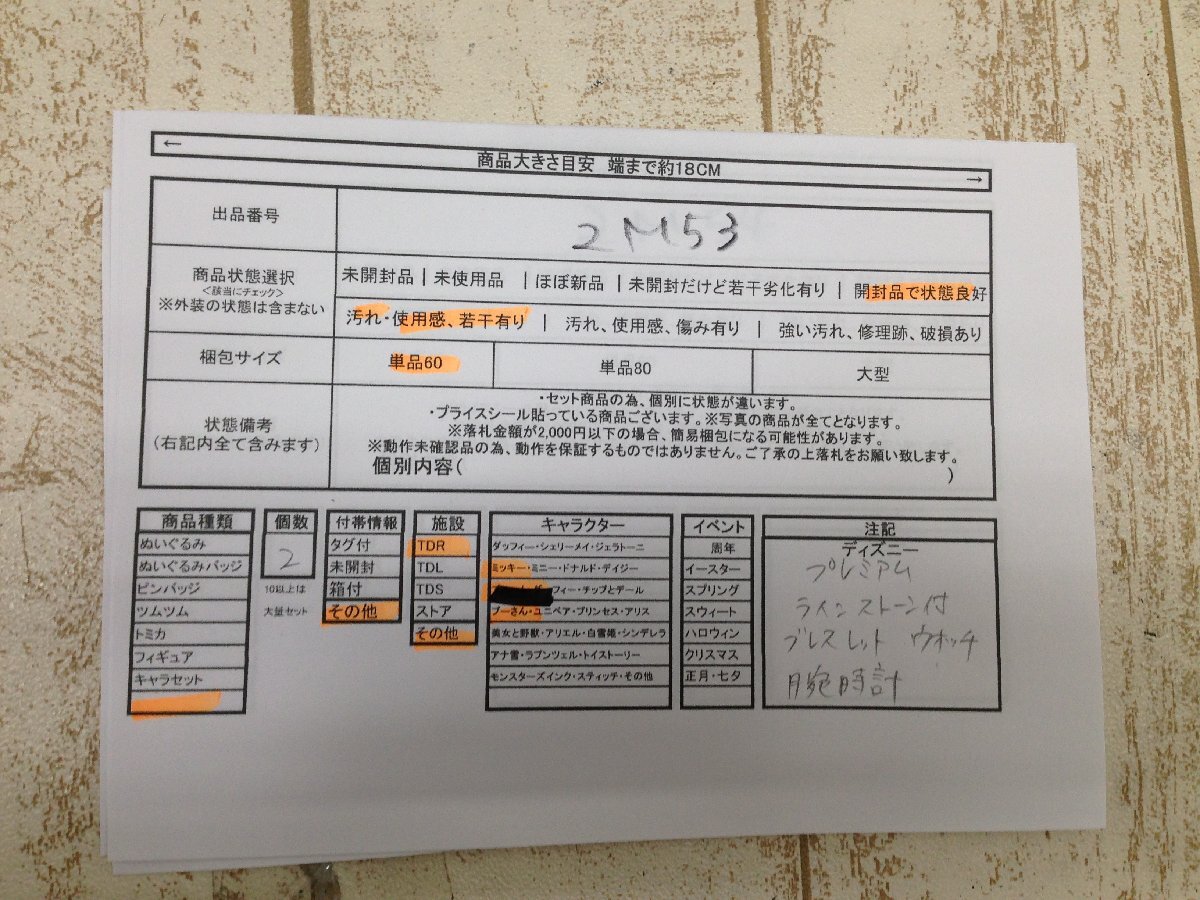 ←
商品大きさ目安 端まで約18CM
→
出品番号
2M53
商品状態選択
<該当にチェック>
※外装の状態は含まない
未開封品 | 未使用品 | ほぼ新品 | 未開封だけど若干劣化有り | 開封品で状態良好
汚れ・使用感、若干有り | 汚れ、使用感、傷み有り | 強い汚れ、修理跡、破損あり
梱包サイズ
単品60
単品80
大型
状態備考
(右記内全て含みます)
・セット商品の為、個別に状態が違います。
・プライスシール貼っている商品ございます。※写真の商品が全てとなります。
※落札金額が2,000円以下の場合、簡易梱包になる可能性があります。
※動作未確認品の為、動作を保証するものではありません。ご了承の上落札をお願い致します。
個別内容( )
商品種類
ぬいぐるみ
ぬいぐるみバッジ
ピンバッジ
ツムツム
トミカ
フィギュア
キャラセット
個数
2
10以上は
大量セット
付帯情報
タグ付
未開封
箱付
その他
施設
TDR
TDL
TDS
ストア
その他
キャラクター
ダッフィー・シェリーメイ・ジェラトーニ
ミッキー・ミニー・ドナルド・デイジー
フィー・チップとデール
プーさん・ユニベア・プリンセス・アリス
美女と野獣・アリエル・白雪姫・シンデレラ
アナ雪・ラプンツェル・トイストーリー
モンスターズインク・スティッチ・その他
イベント
周年
イースター
スプリング
スウィート
ハロウィン
クリスマス
正月・七夕
注記
ディズニー
プレミアム
ラインストーン付
ブレスレット ウォッチ
腕時計